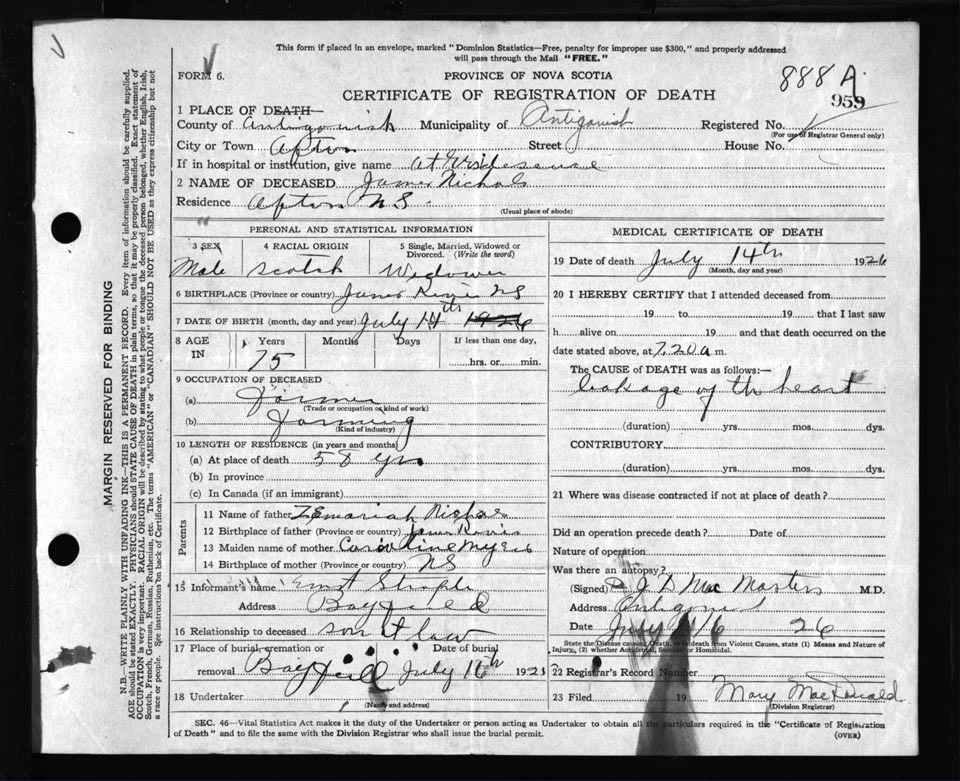 This form if placed in an envelope, marked "Dominion Statistics—Free, penalty for improper use $300," and properly addressed
will pass through the Mail "FREE."
FORM 6.
PROVINCE OF NOVA SCOTIA
888 A
959
CERTIFICATE OF REGISTRATION OF DEATH
1 PLACE OF DEATH—
County of Antigonish Municipality of Antigonish Registered No.
(For use of Registrar General only)
City or Town Afton Street House No.
If in hospital or institution, give name at
2 NAME OF DECEASED James Nichols
Residence Afton N S.
(Usual place of abode)
PERSONAL AND STATISTICAL INFORMATION
3 SEX 4 RACIAL ORIGIN 5 Single, Married, Widowed or Divorced. (Write the word)
Male Scotch Widower
6 BIRTHPLACE (Province or country) N S
7 DATE OF BIRTH (month, day and year) July 14th 1926
8 AGE IN Years Months Days If less than one day,
75 hrs. or min.
9 OCCUPATION OF DECEASED
(a) Farmer
(Trade or occupation or kind of work)
(b) Farming
(Kind of industry)
10 LENGTH OF RESIDENCE (in years and months)
(a) At place of death 58 yrs
(b) In province
(c) In Canada (if an immigrant)
Parents
11 Name of father Nichols
12 Birthplace of father (Province or country)
13 Maiden name of mother Caroline Myers
14 Birthplace of mother (Province or country) N S
15 Informant's name
Address Bayfield
16 Relationship to deceased son
17 Place of burial, cremation or removal Bayfield Date of burial July 16th 192
18 Undertaker
(Name and address)
MEDICAL CERTIFICATE OF DEATH
19 Date of death July 14th 1926
(Month, day and year)
20 I HEREBY CERTIFY that I attended deceased from
19 to 19 that I last saw
h alive on 19 and that death occurred on
date stated above, at 7.20 a m.
The CAUSE of DEATH was as follows:—
leakage of th heart
(duration) yrs. mos. dys.
CONTRIBUTORY
(duration) yrs. mos. dys.
21 Where was disease contracted if not at place of death?
Did an operation precede death? Date of
Nature of operation
Was there an autopsy?
(Signed) J. D Mac Masters M.D.
Address Antigonish
Date July 16 26
State the Disease causing Death, or to death from Violent Causes, state (1) Means and Nature of
Injury, (2) whether Accidental, Suicidal or Homicidal.
22 Registrar's Record Number
23 Filed 19 Mary MacDonald
(Division Registrar)
SEC. 46—Vital Statistics Act makes it the duty of the Undertaker or person acting as Undertaker to obtain all the particulars required in the "Certificate of Registration
of Death" and to file the same with the Division Registrar who shall issue the burial permit.
(OVER)
MARGIN RESERVED FOR BINDING
N.B.—WRITE PLAINLY WITH UNFADING INK—THIS IS A PERMANENT RECORD. Every item of information should be carefully supplied.
AGE should be stated EXACTLY. PHYSICIANS should STATE CAUSE OF DEATH in plain terms, so that it may be properly classified. Exact statement of
OCCUPATION is very important. RACIAL ORIGIN will be described by stating to what people or tongue the deceased person belonged, whether English, Irish,
Scotch, French, German, Russian, Ruthenian, etc. The terms "AMERICAN" or "CANADIAN" SHOULD NOT BE USED as they express citizenship but not
a race or people. See instructions on back of Certificate.